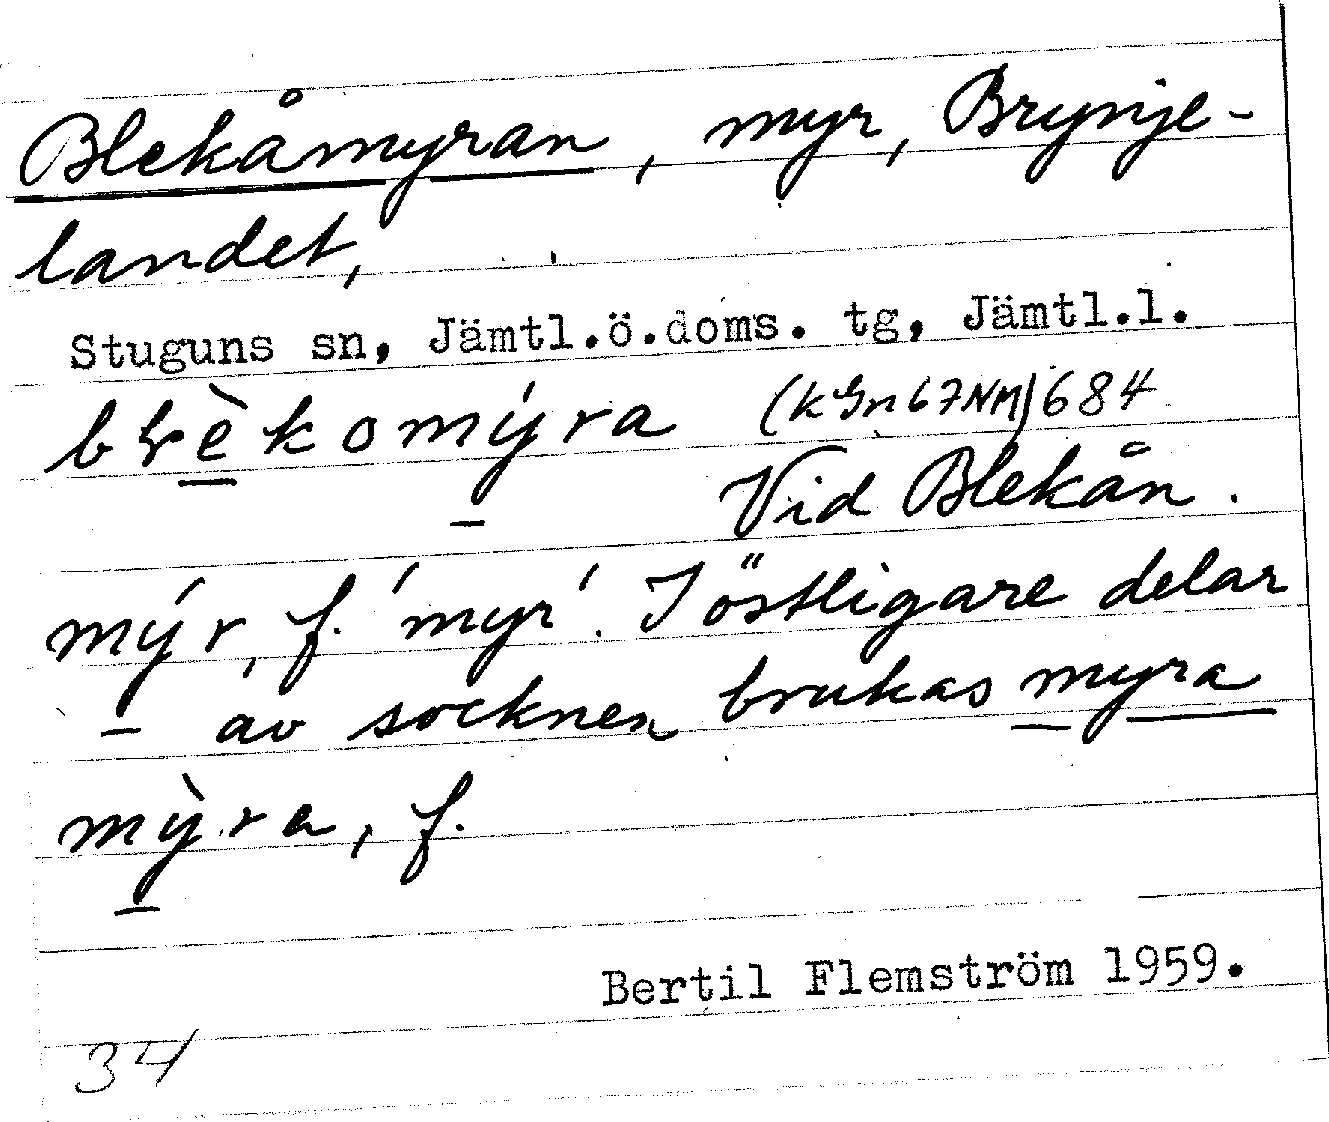 Blekåmyran, myr, Brynje-
landet,
Stuguns sn, Jämtl.ö.doms. tg, Jämtl.l.
blèkomýra (kGn67NM)684
Vid Blekån.
mýr, f. 'myr'. I östligare delar
av socknen brukas myra
mỳra, f.
Bertil Flemström 1959.
34